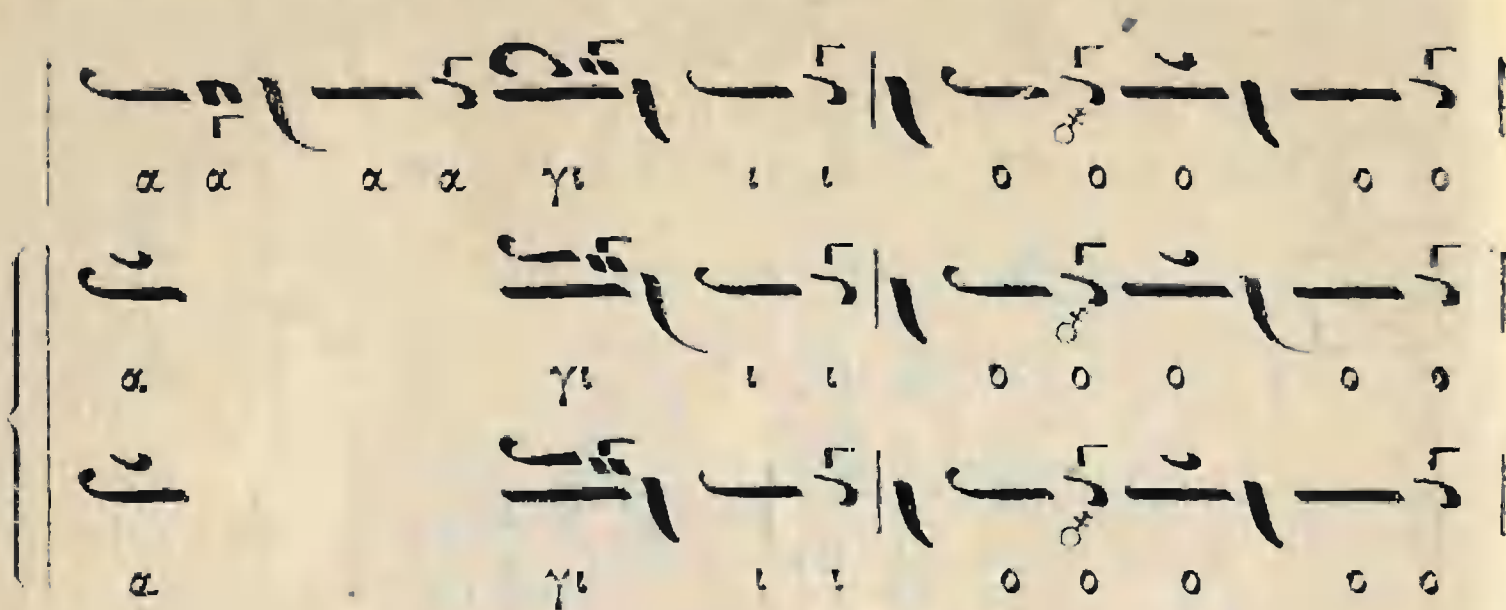 α α α α γι ι ι ο ο ο ο ο
α γι ι ι ο ο ο ο ο
α γι ι ι ο ο ο ο ο